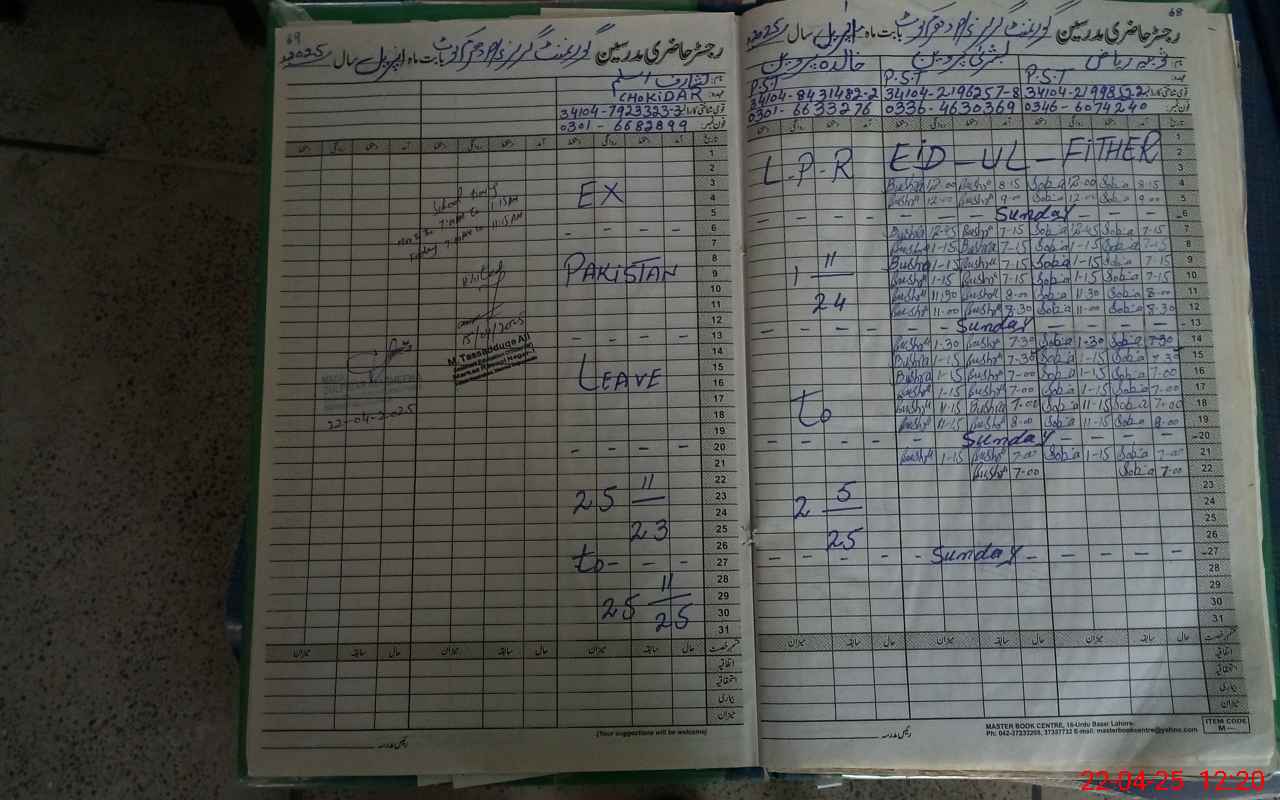 68
رجسٹر حاضری مدرسین گورنمنٹ گرلز بابت ماہ اپریل سال 2025ء
خالدہ پروین بشریٰ پروین ثوبیہ ریاض
P.S.T P.S.T P.S.T
34104-8431482-2 34104-2196257-8
0301-6633276 0336-4630369 0346-6074240
تاریخ
L-P-R EiD-UL-FITHER
Bushra 12-00 Bushra 8-15 Sobia 12-00 Sobia 8-15 4
Bushra 12-00 Bushra 9-00 Sobia 12-00 Sobia 9-00 5
Sunday 6
Bushra 12-45 Bushra 7-15 Sobia 12-45 Sobia 7-15 7
Bushra 1-15 Bushra 7-15 Sobia 1-15 Sobia 7-15 8
Bushra 1-15 Bushra 7-15 Sobia 1-15 Sobia 7-15 9
Bushra 1-15 Bushra 7-15 Sobia 1-15 Sobia 7-15 10
Bushra 11-30 Bushra 8-00 Sobia 11-30 Sobia 8-00 11
Bushra 11-00 Bushra 8-30 Sobia 11-00 Sobia 8-30 12
Sunday 13
Bushra 1-30 Bushra 7-30 Sobia 1-30 Sobia 7-30 14
Bushra 1-15 Bushra 7-30 Sobia 1-15 Sobia 7-30 15
Bushra 1-15 Bushra 7-00 Sobia 1-15 Sobia 7-00 16
Bushra 1-15 Bushra 7-00 Sobia 1-15 Sobia 7-00 17
Bushra 11-15 Bushra 7-00 Sobia 11-15 Sobia 7-00 18
Bushra 11-15 Bushra 8-00 Sobia 11-15 Sobia 8-00 19
Sunday 20
Bushra 1-15 Bushra 7-00 Sobia 1-15 Sobia 7-00 21
Bushra 7-00 Sobia 7-00 22
1 11
24
to
2 5
25
23
24
25
26
Sunday 27
28
29
30
31
میزان سابقہ حال میزان سابقہ حال میزان سابقہ حال
اتفاقیہ
استحقاقیہ
بیماری
میزان
رئیس مدرسہ
MASTER BOOK CENTRE, 16-Urdu Bazar Lahore.
ITEM CODE
M
69
رجسٹر حاضری مدرسین گورنمنٹ گرلز بابت ماہ اپریل سال 2025ء
CHOKiDAR
34104-7923323-3
0301-6682899
تاریخ
1
2
3
EX 4
5
6
7
8
PAKISTAN 9
10
11
12
13
14
15
LEAVE 16
17
18
19
20
21
22
25 11 23
24
23 25
26
to 27
28
25 11 29
25 30
31
M. Tassadduqe Ali
22-04-2025
میزان سابقہ حال میزان سابقہ حال میزان سابقہ حال
اتفاقیہ
استحقاقیہ
بیماری
میزان
(Your suggestions will be welcome)
رئیس مدرسہ
22-04-25 12:20